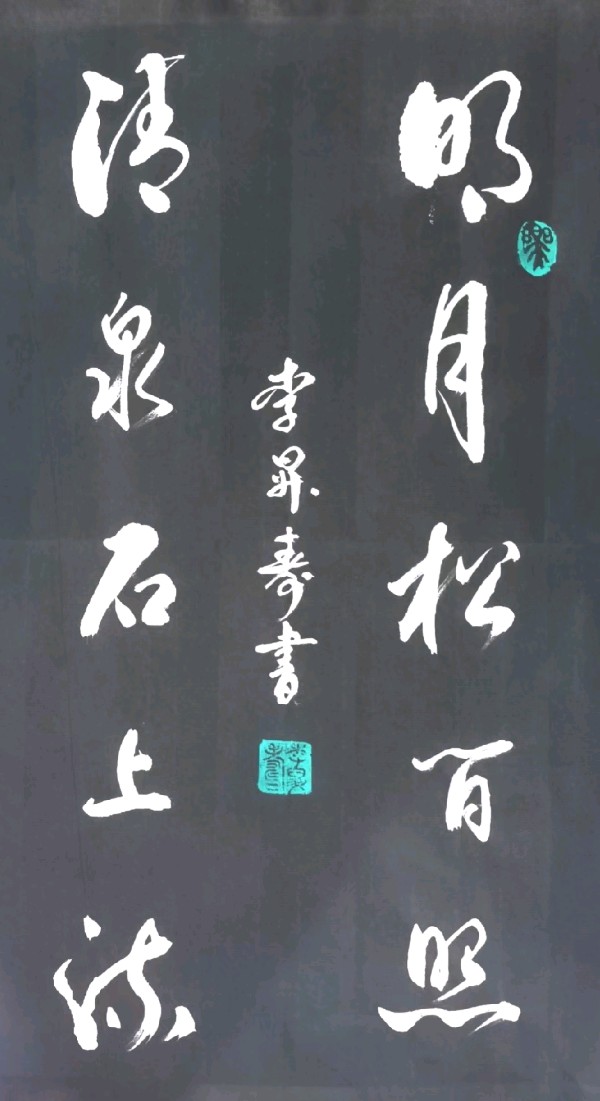 明月松间照
清泉石上流
李昇寿書